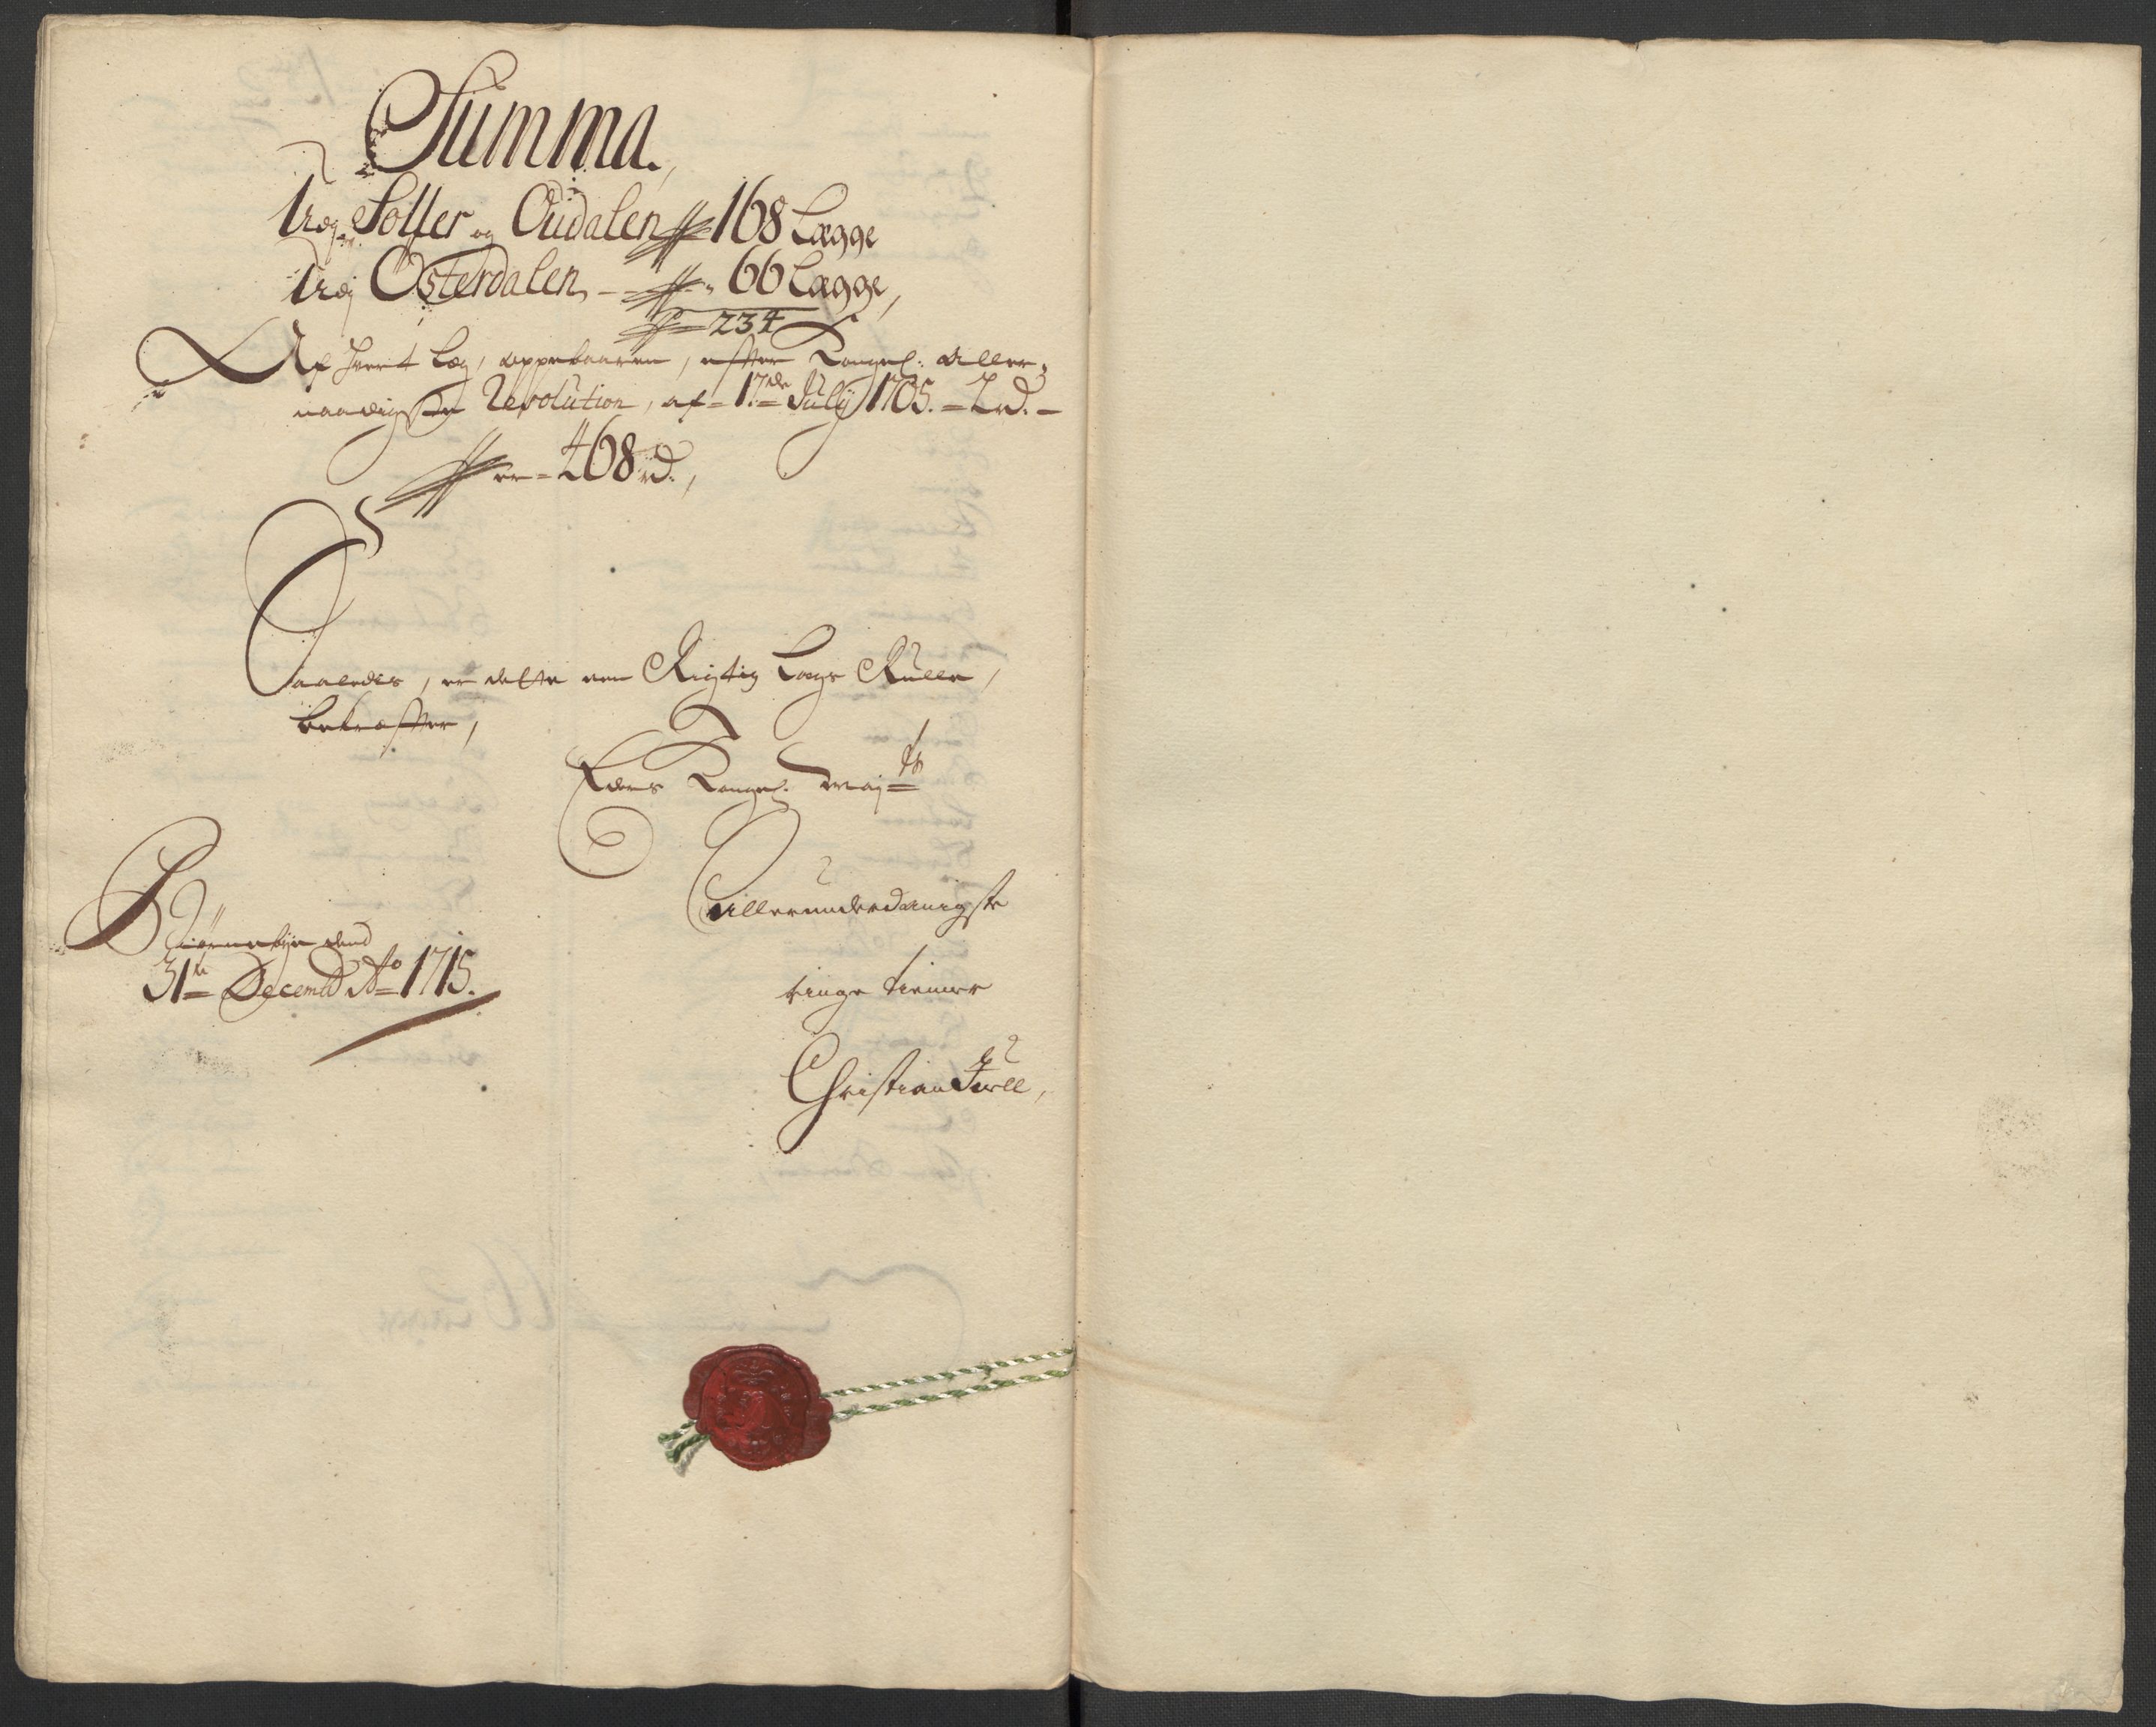 Summa.
Udj Soller og Oudalen 168 Lægge
Udj Østerdalen - 66 Lægge,
234
Af hvert Læg, oppebaaren, efter Kongel: Aller-
naadigste Resolution, af 1.de Julÿ 1705. - 2 rd. -
er - 468 rd.,
Saaledes, er dette een Rigtig Lægs Rulle,
bekræfter,
Eders Kongel. Maj:ts
Allerunderdanigste
ringe tienner
Christian Juell,
dend
31te Decemb Ao 1715.